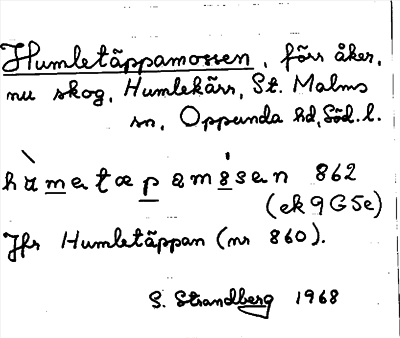 Humletäppamossen, förr åker,
nu skog, Humlekärr, St. Malms
sn, Oppunda hd, Söd. l.
hùmetæpamósen 862
(ek 9 G 5e)
Jfr Humletäppan (nr 860).
S. Strandberg 1968